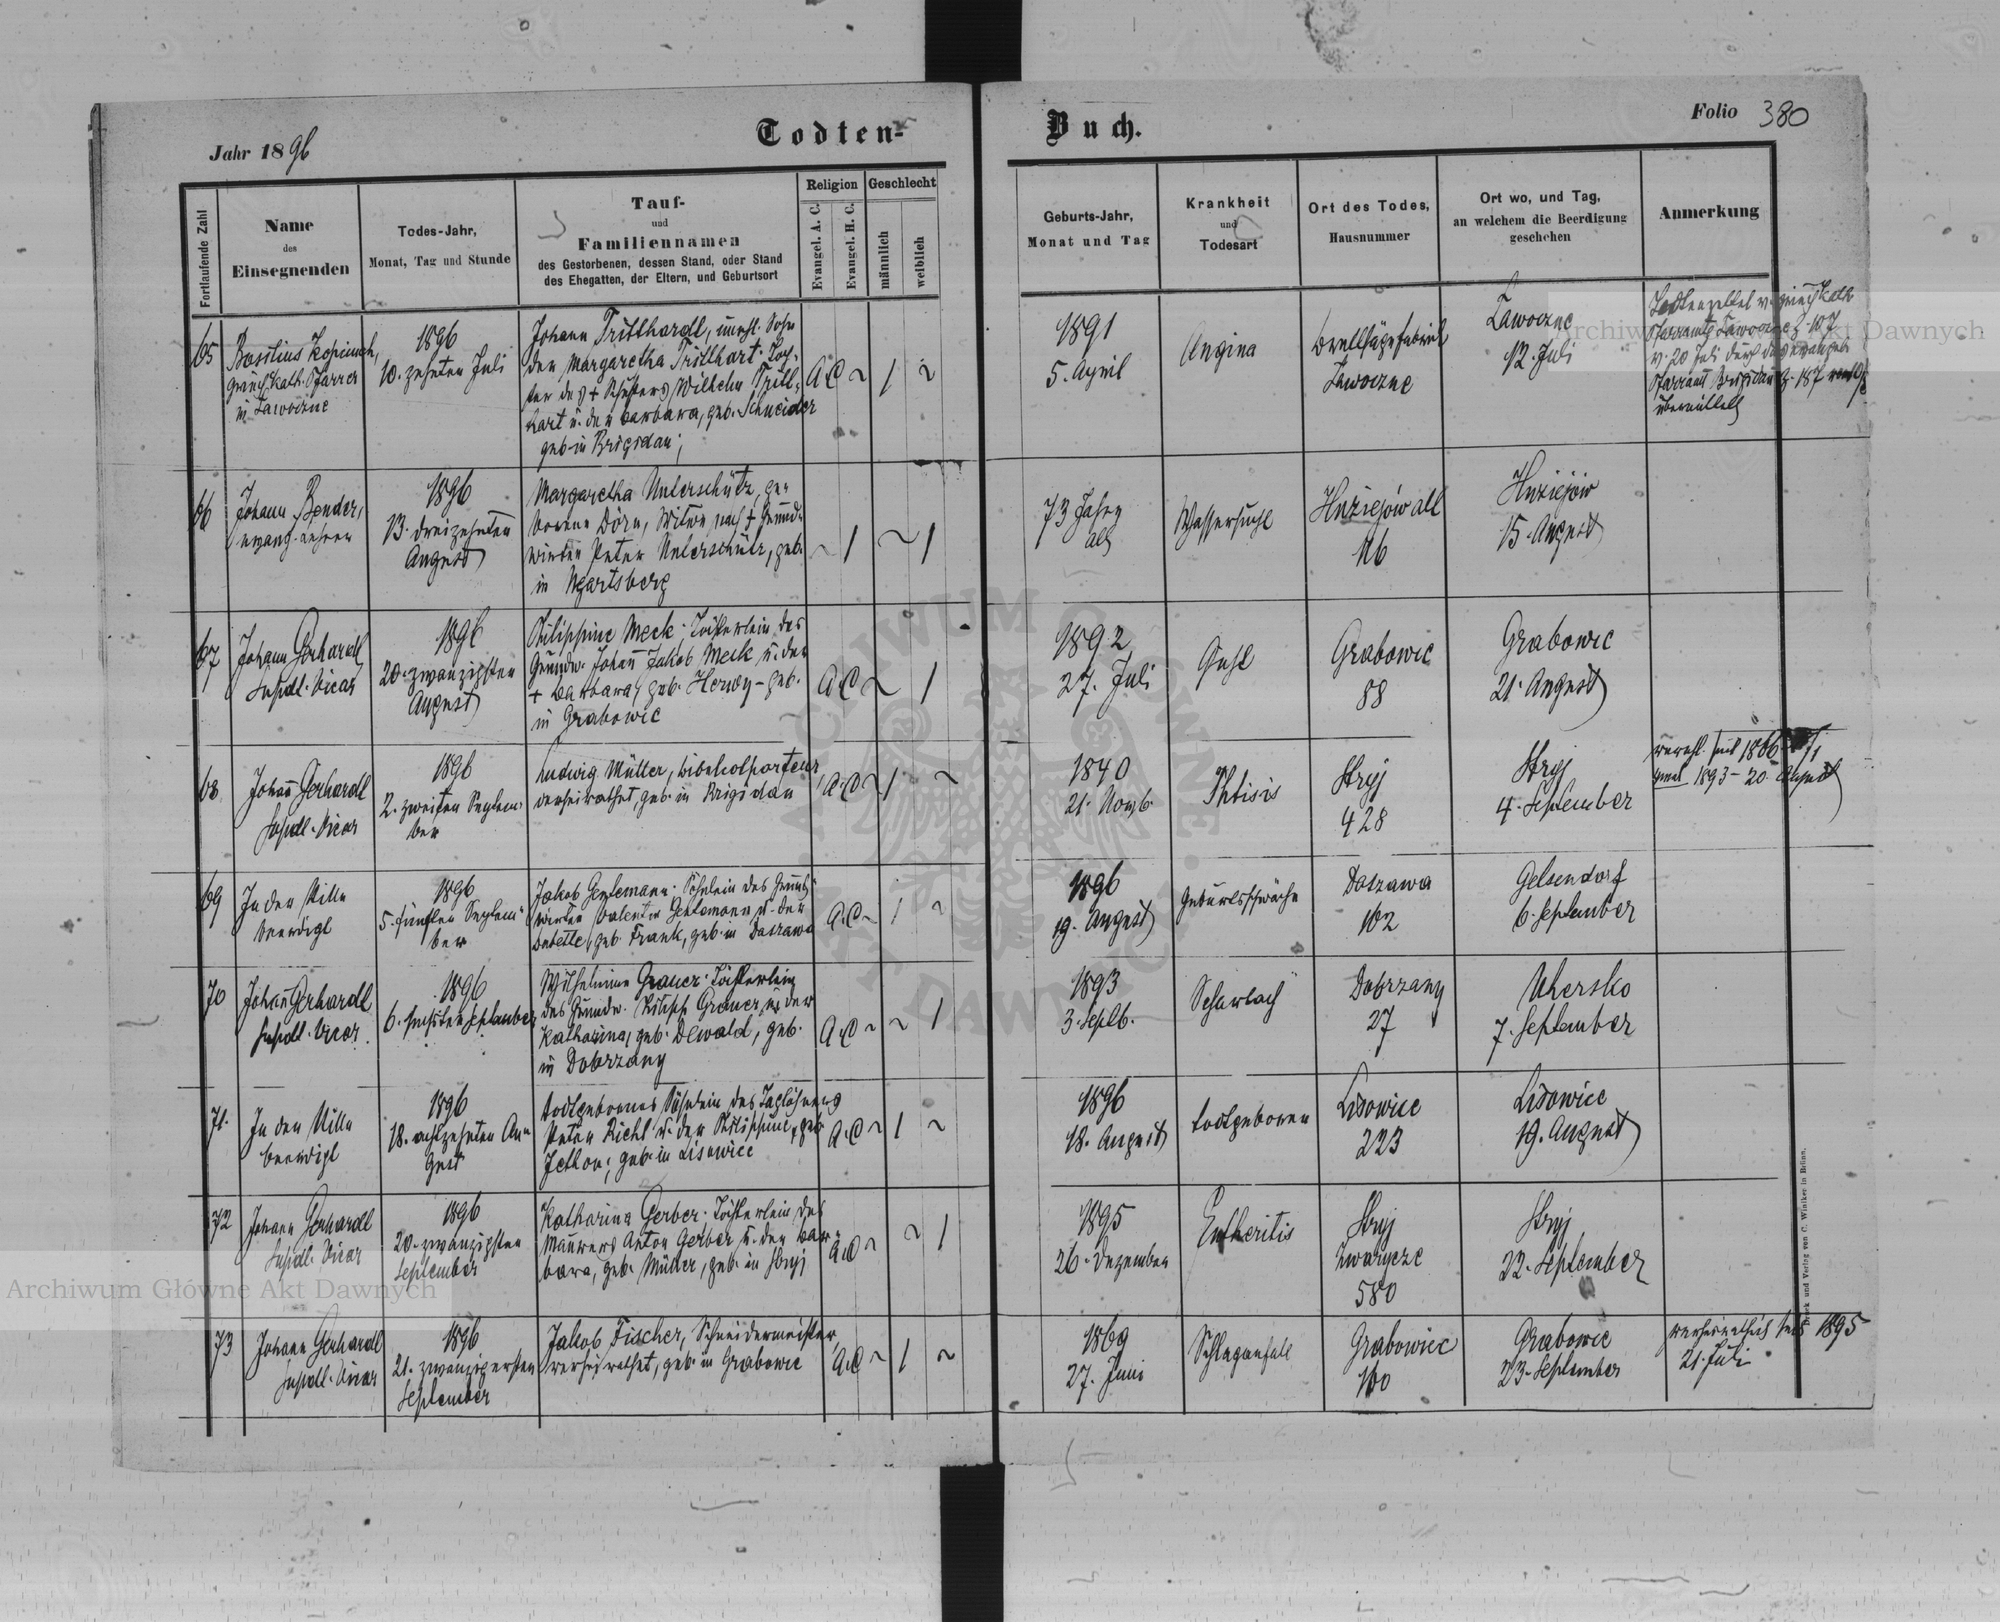 Jahr 1896
Todten-
Buch.
Folio 380
Fortlaufende Zahl
Name
des
Einsegnenden
Todes-Jahr,
Monat, Tag und Stunde
Tauf-
und
Familiennamen
des Gestorbenen, dessen Stand, oder Stand
des Ehegatten, der Eltern, und Geburtsort
Religion
Evangel. A. C.
Evangel. H. C.
Geschlecht
männlich
weiblich
Geburts-Jahr,
Monat und Tag
Krankheit
und
Todesart
Ort des Todes,
Hausnummer
Ort wo, und Tag,
an welchem die Beerdigung
geschehen
Anmerkung
65
Basilius
griech. kath. Pfarrer
in Lawoczne
1896
10. zehnten Juli
Johann Trillhardt, unehl. Sohn
der Margaretha Trillhart. Toch-
ter des + Wilhelm Trill-
hart u. der Barbara, geb. Schneider
geb. in Brigidau;
A.C ~
1 ~
1891
5. April
Angina
Lawoczne
Lawoczne
12. Juli
v. griech. kath.
Pfarramts Lawoczne Z. 107
v. 20 Juli durch das evangel.
Pfarramt Brigidau Z. 187
übermittelt
66
Johann Bender,
evang. Lehrer
1896
13. dreizehnten
August
Margaretha Unterschütz, ge-
borene Dörn, Witwe nach + Grund-
wirten Peter Unterschütz, geb.
in Ugartsberg
~ 1
~ 1
73 Jahre
alt
Wassersucht
Hnziejów alt
116
Hnziejów
15. August
67
Johann Gerhardt
Vicar
1896
20. zwanzigsten
August
Philippine Meck. Töchterlein des
Grundw. Johann Jakob Meck u. der
+ Barbara, geb. - geb.
in Grabowic
A.C ~
1
1892
27. Juli
Grabowic
88
Grabowic
21. August
68
Johann Gerhardt
Vicar
1896
2. zweiten Septem-
ber
Ludwig Müller, Bibelcolporteur
verheirathet, geb. in Brigidau
A.C ~
1 ~
1840
21. Novb.
Phtisis
Stryj
428
Stryj
4. September
verehl. seit 1866
1893 - 20. August
69
In der Stille
beerdigt
1896
5. fünften Septem-
ber
Jakob Gentemann. Söhnlein des Grund-
wirten Valentin Gentemann u. der
Babette, geb. Frank, geb. in Daszawa
A.C ~
1 ~
1896
19. August
Geburtsschwäche
Daszawa
102
Gelsendorf
6. September
70
Johann Gerhardt
Vicar.
1896
6. sechsten September
Wilhelmine Grauer. Töchterlein
des Grundw. Philipp Grauer u. der
Katharina, geb. Dewald, geb.
in Dobrzany
A.C ~
~ 1
1893
3. Septb.
Scharlach
Dobrzany
27
Uhersko
7. September
71.
In der Stille
beerdigt
1896
18. achtzehnten Au-
gust
Todtgebornes Söhnlein des Taglöhners
Peter Richl u. der Philippine, geb.
geb. in Lisowice
A.C ~
1 ~
1896
18. August
todtgeboren
Lisowice
223
Lisowice
19. August
72
Johann Gerhardt
Vicar
1896
20. zwanzigsten
September
Katharina Gerber. Töchterlein des
Maurers Anton Gerber u. der Bar-
bara, geb. Müller, geb. in Stryj
A.C ~
~ 1
1895
26. Dezember
Entheritis
Stryj
580
Stryj
22. September
73
Johann Gerhardt
Vicar
1896
21. zwanzigersten
September
Jakob Fischer, Schneidermeister,
verheirathet, geb. in Grabowic
A.C ~
1 ~
1869
27. Juni
Schlaganfall
Grabowiec
160
Grabowic
23. September
verheirathet seit 1895
21. Juli
Druck und Verlag von C. Winiker in Brünn.
Archiwum Główne Akt Dawnych
Archiwum Główne Akt Dawnych
ARCHIWUM GŁÓWNE AKT DAWNYCH